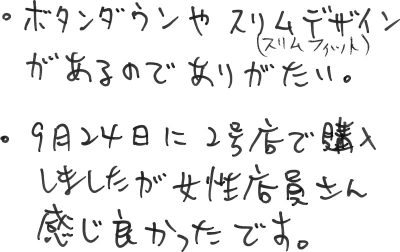 ・ボタンダウンや スリムデザイン
(スリムフィット)
があるのでありがたい。
・9月24日に2号店で購入
しましたが女性店員さん
感じ良かったです。